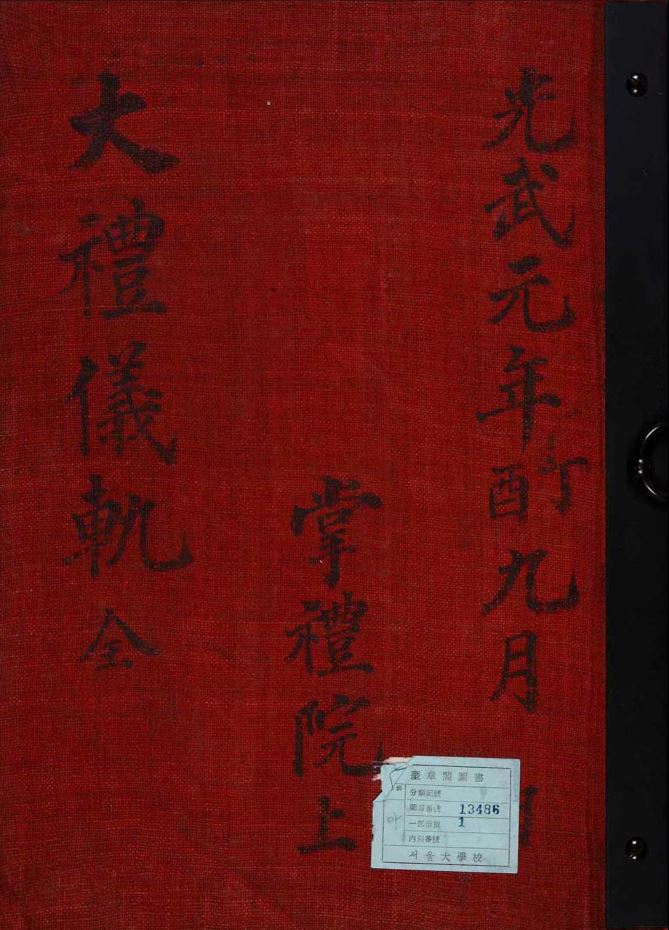 光武元年丁酉九月 日
掌禮院上
大禮儀軌 全
奎章閣圖書
分類記號
圖書番號 13486
一部冊數 1
內別番號
서울大學校